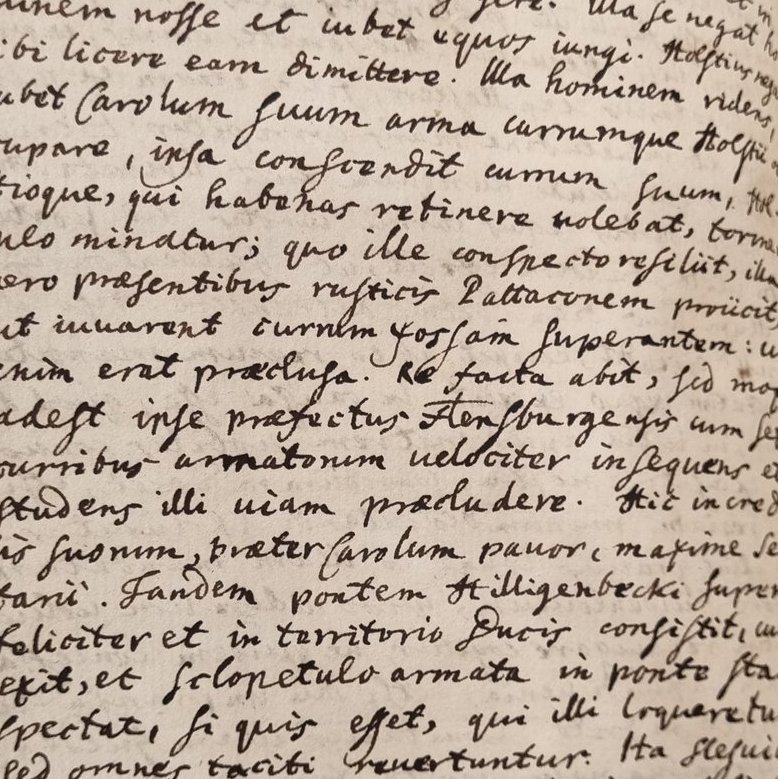 nosse et iubet equos iungi. Holstius
licere eam dimittere. Illa hominem ridens,
Carolum suum arma currumque Holstii
, ipsa conscendit currum suum,
qui habenas retinere volebat,
minatur; quo ille conspecto resiliit, illa
præsentibus rusticis Pattaconem proiicit
ut iuuarent currum fossam superantem:
enim erat præclusa. Re facta abit, sed
adest ipse præfectus Flensburgensis cum
curribus armatorum uelociter insequens et
studens illi uiam præcludere. Hic
suorum, præter Carolum pavor, maxime
Tandem pontem Hilligenbecki
feliciter et in territorio Ducis consistit,
et sclopetulo armata in ponte
spectat, si quis esset, qui illi
sed omnes taciti reuertuntur. Ita